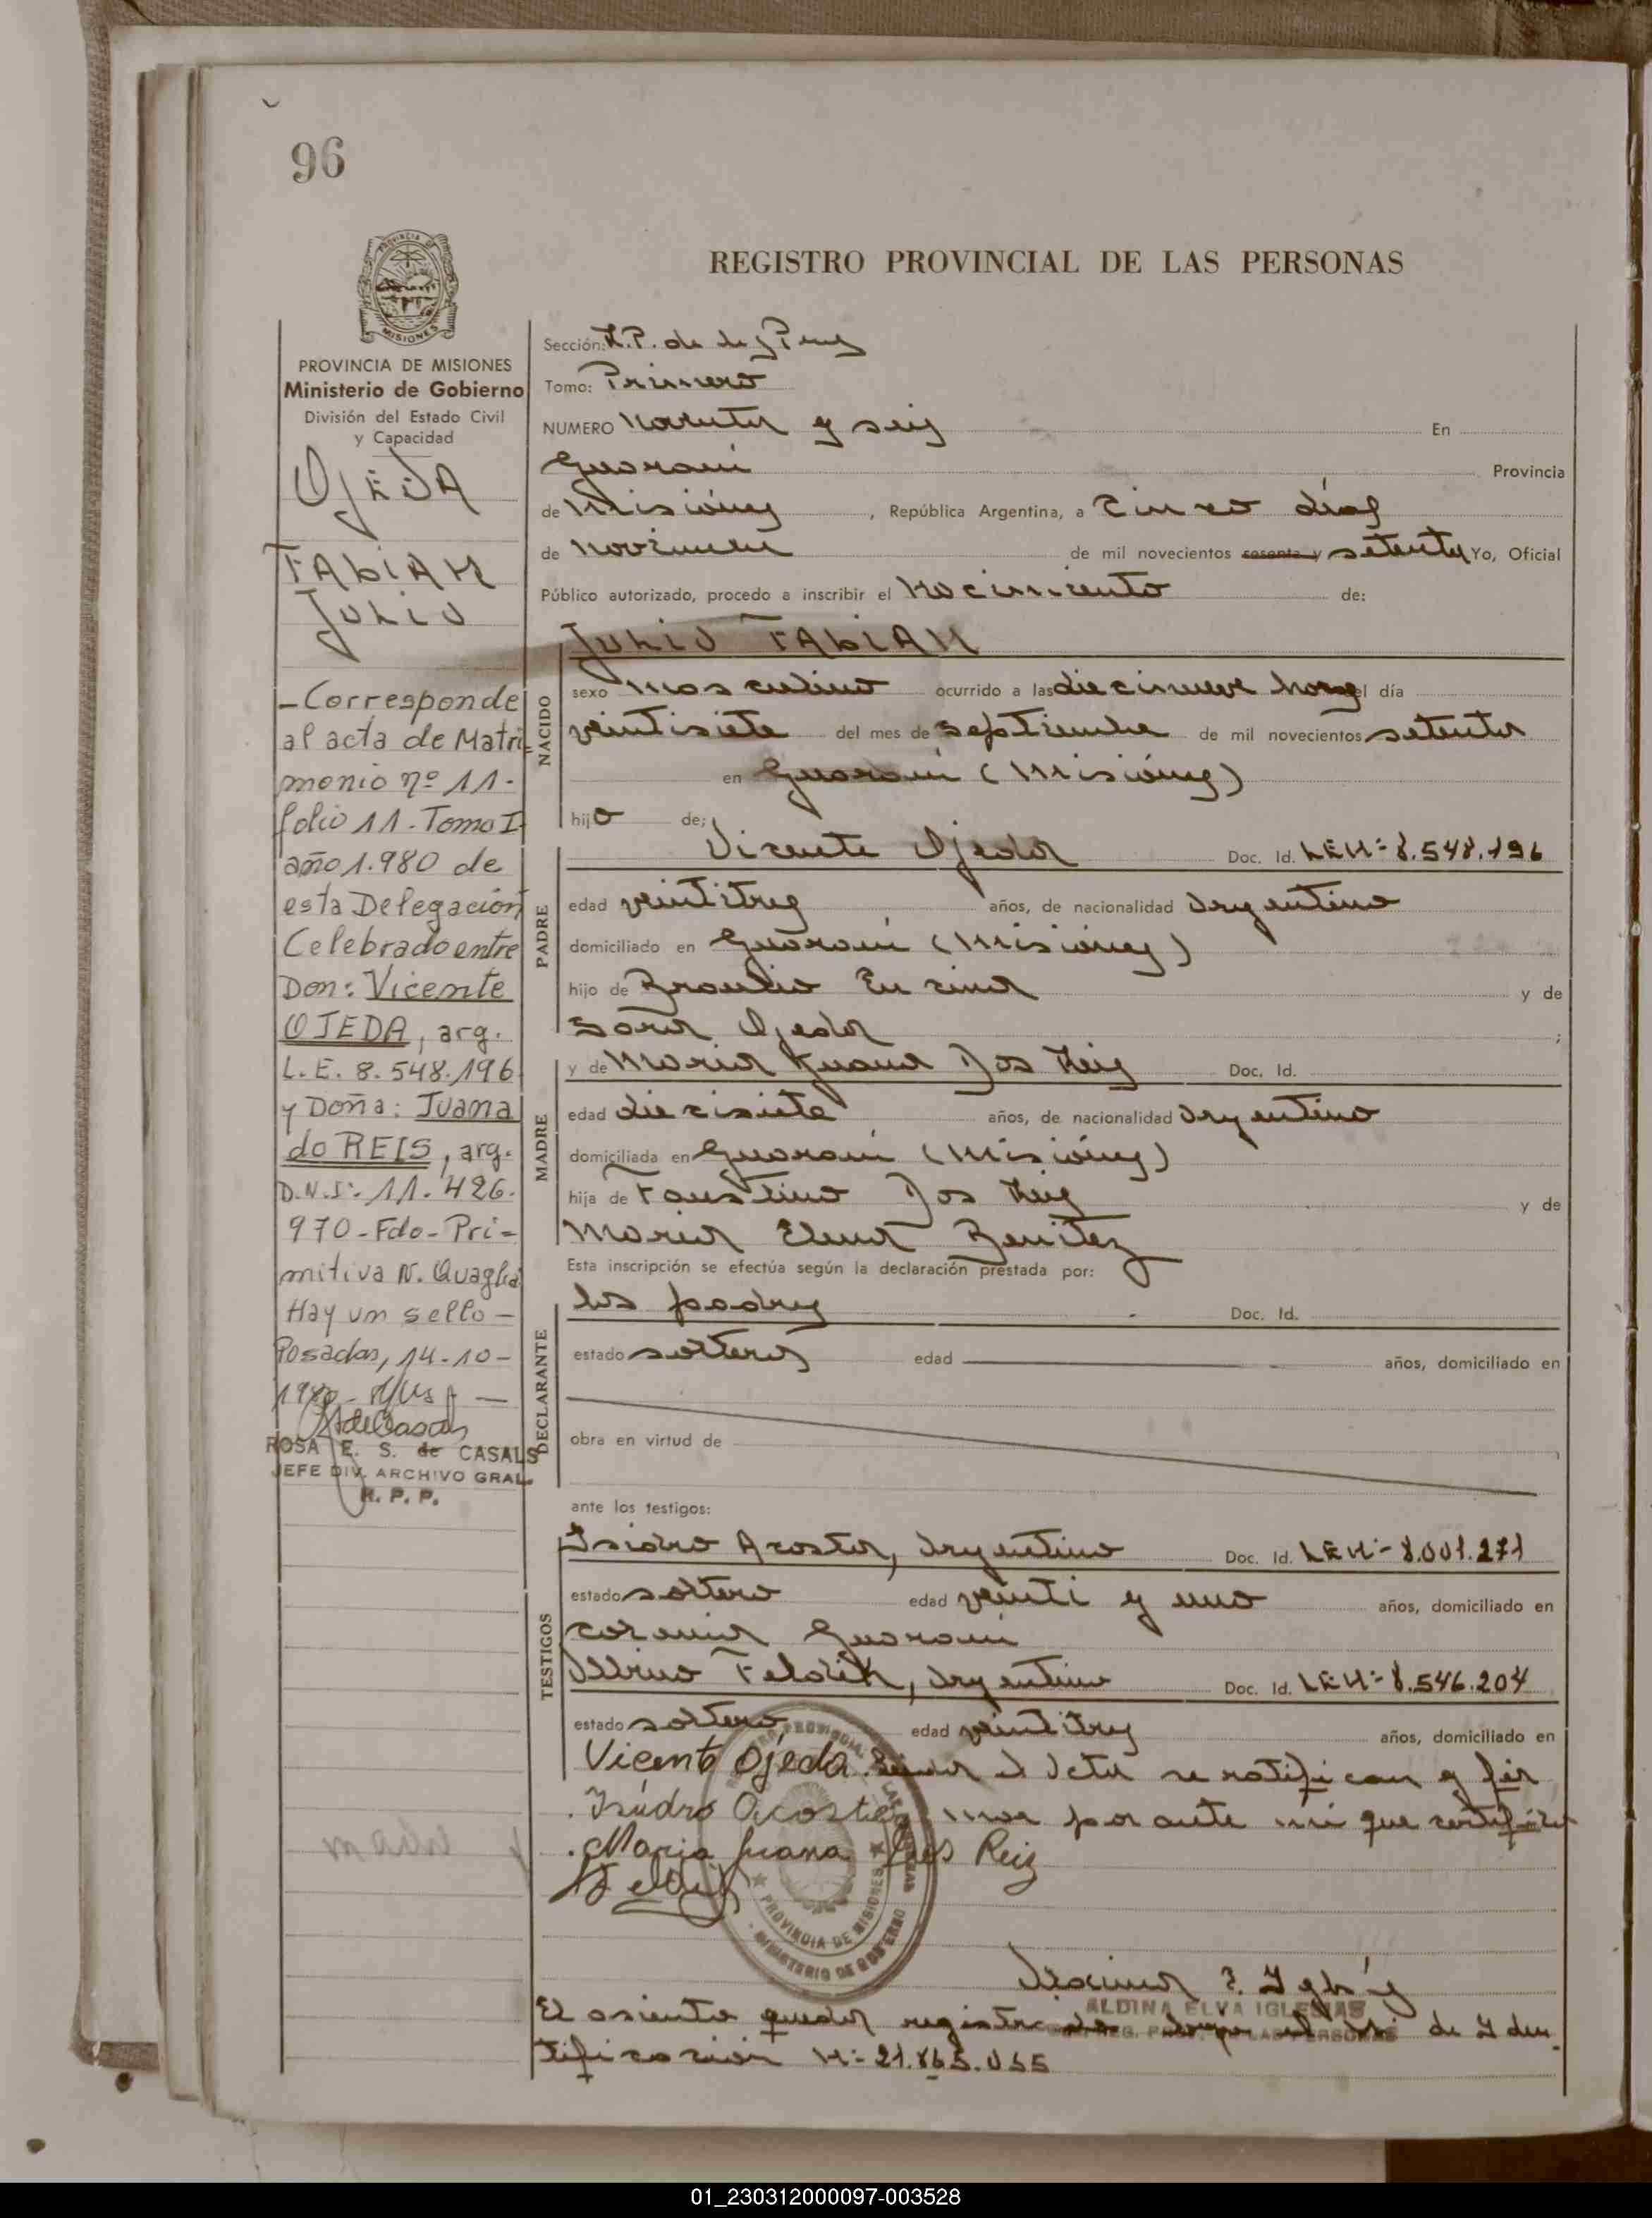 96
REGISTRO PROVINCIAL DE LAS PERSONAS
PROVINCIA DE MISIONES
Ministerio de Gobierno
División del Estado Civil
y Capacidad
OJEDA
FABIAN
JULIO
- Corresponde
al acta de Matri
monio nº 11-
folio 11. Tomo I
año 1.980 de
esta Delegación
Celebrado entre
Don: Vicente
OJEDA, arg.
L.E. 8.548.196
y Doña: Juana
do REIS, arg.
D.N.I: 11.426.
970-Fdo-Pri-
mitiva N. Quaglia
Hay un sello-
Posadas, 14-10-
1980-
ROSA E. S. de CASALS
JEFE DIV. ARCHIVO GRAL.
R. P. P.
Sección: R.P. de
Tomo: Primero
NUMERO Noventa y seis En
Guarani Provincia
de Misiones, República Argentina, a cinco dias
de noviembre de mil novecientos sesenta y setenta Yo, Oficial
Público autorizado, procedo a inscribir el Nacimiento de:
JULIO FABIAN
NACIDO
sexo masculino ocurrido a las diecinueve horas del día
veintisiete del mes de septiembre de mil novecientos setenta
en Guarani (Misiones)
hijo de;
PADRE
Vicente Ojeda Doc. Id. LEN:- 8.548.196
edad veintitres años, de nacionalidad argentino
domiciliado en Guarani (Misiones)
hijo de Braulio Encina y de
Ojeda ;
MADRE
y de Maria Juana Dos Reis Doc. Id.
edad diecisiete años, de nacionalidad argentina
domiciliada en Guarani (Misiones)
hija de Faustino Dos Reis y de
Maria Elena Benitez
Esta inscripción se efectúa según la declaración prestada por:
DECLARANTE
los padres Doc. Id.
estado solteros edad años, domiciliado en
obra en virtud de
ante los testigos:
TESTIGOS
Isidro Acosta, argentino Doc. Id. LEN:- 8.001.271
estado soltero edad veinti y uno años, domiciliado en
colonia Guarani
Albino Feldik, argentino Doc. Id. LEN:- 8.546.204
estado soltero edad veintitres años, domiciliado en
Vicente Ojeda. Leida el acta se ratifican y fir
Isidro Acosta man por ante mi que certifico
Maria Juana dos Reis
PROVINCIA DE MISIONES
MINISTERIO DE GOBIERNO
ALDINA ELVA IGLESIAS
El asiento queda registrado de Iden
tificacion N:- 21.865.055
01_230312000097-003528